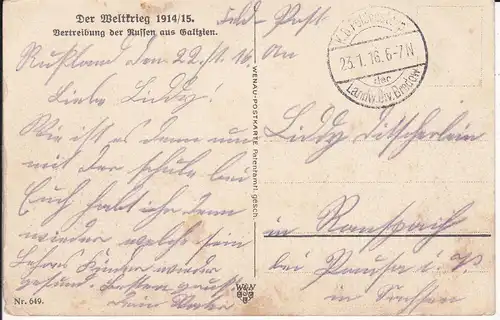 Der Weltkrieg 1914/15.
Vertreibung der Russen aus Galizien.
Feld-Post
Rußland den 22. 16
Liebe Liddy!
Wie ist es denn nun
mit der Schule bei
Euch habt ihr denn
wieder
Lehrer Kinder wieder
gesund. Besten Gruß
Dein Vater
Nr. 649.
WENAU-POSTKARTE Patentamtl. gesch.
An
Liddy
in Ranspach
bei Pausa i. V.
in Sachsen
23.1.16.6-7N
der
Landw. Div. Bredow